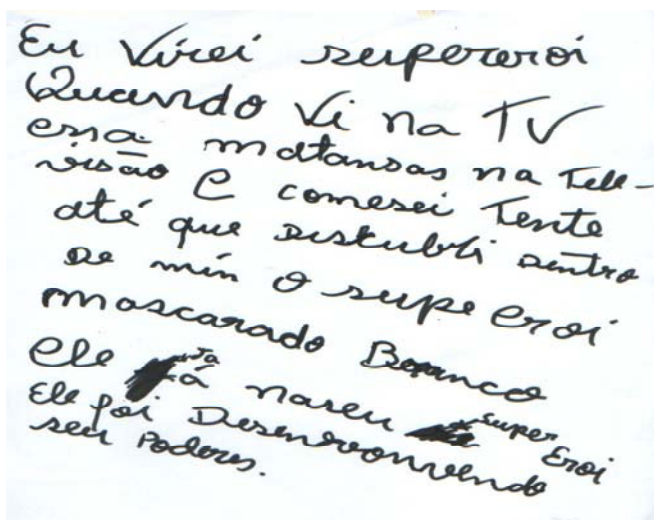 Eu Virei supereroi
Quando Vi na TV
essa matansas na Tele-
visão e comesei Tente
até que Diskubri dentro
de min o supe Eroi
mascarado Branco
Ele já naseu super Eroi
Ele foi Desenvonvendo
seu Poderes.